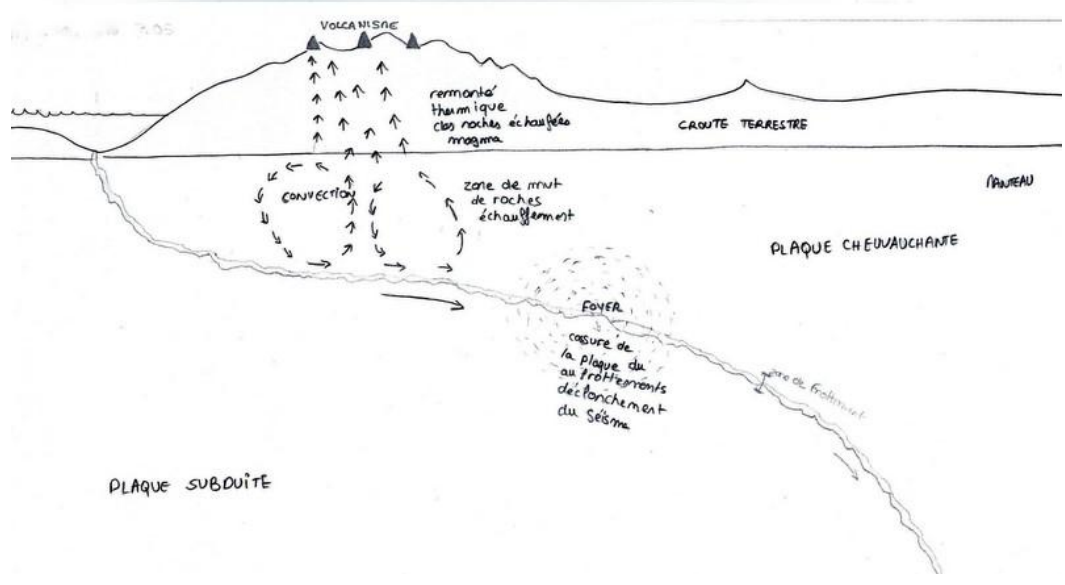 VOLCANISME
remonté
thermique
des roches échauffées
magma
CROUTE TERRESTRE
MANTEAU
CONVECTION
zone de mvt
de roches
échauffement
PLAQUE CHEVAUCHANTE
FOYER
cassure de
la plaque du
au frottements
déclenchement
du séisme
zone de frottement
PLAQUE SUBDUITE